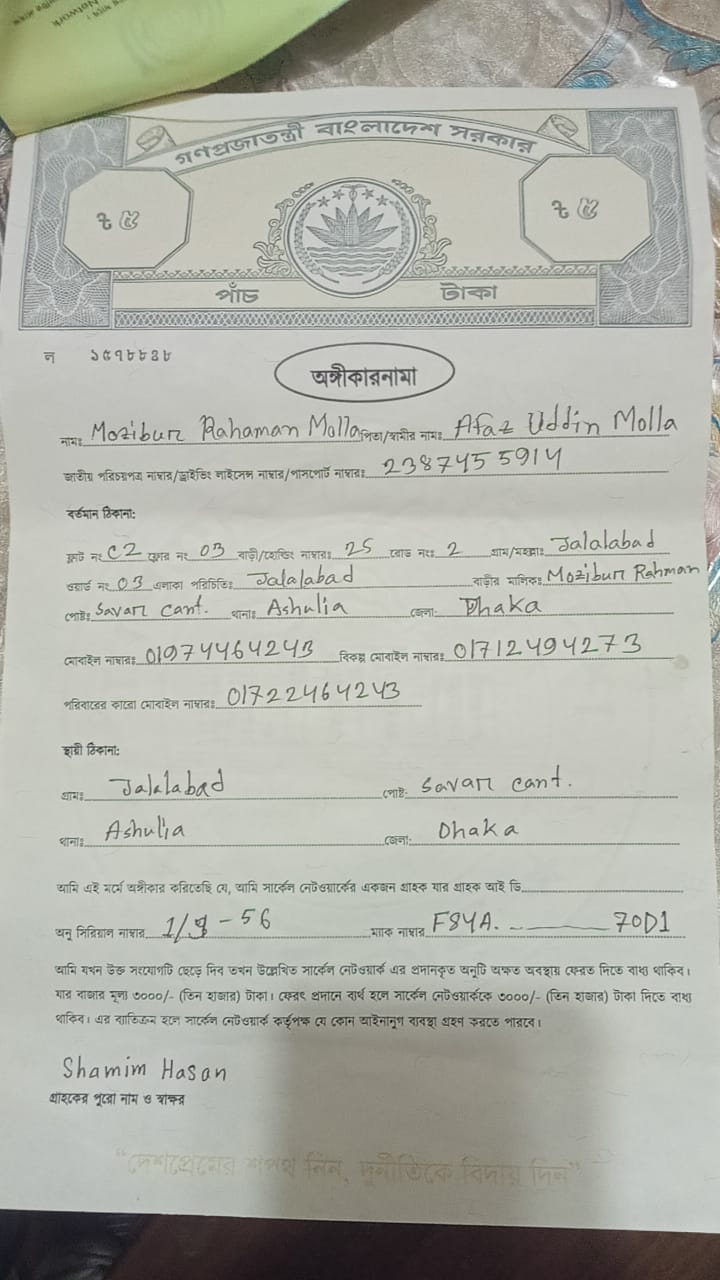 Network
গণপ্রজাতন্ত্রী বাংলাদেশ সরকার
৳ ৫ ৳ ৫
পাঁচ টাকা
ল ১৫৭৮৮৪৮
অঙ্গীকারনামা
নামঃ Mozibur Rahaman Molla পিতা/স্বামীর নামঃ Afaz Uddin Molla
জাতীয় পরিচয়পত্র নাম্বার/ড্রাইভিং লাইসেন্স নাম্বার/পাসপোর্ট নাম্বারঃ 2387455914
বর্তমান ঠিকানা:
ফ্লাট নং C2 ফ্লোর নং 03 বাড়ী/হোল্ডিং নাম্বারঃ 25 রোড নংঃ 2 গ্রাম/মহল্লাঃ Jalalabad
ওয়ার্ড নং 03 এলাকা পরিচিতিঃ Jalalabad বাড়ীর মালিকঃ Mozibur Rahman
পোষ্টঃ Savar cant. থানাঃ Ashulia জেলা: Dhaka
মোবাইল নাম্বারঃ 01974464243 বিকল্প মোবাইল নাম্বারঃ 01712494273
পরিবারের কারো মোবাইল নাম্বারঃ 01722464243
স্থায়ী ঠিকানা:
গ্রামঃ Jalalabad পোষ্ট: Savar cant.
থানাঃ Ashulia জেলা: Dhaka
আমি এই মর্মে অঙ্গীকার করিতেছি যে, আমি সার্কেল নেটওয়ার্কের একজন গ্রাহক যার গ্রাহক আই ডি
অনু সিরিয়াল নাম্বার 1/9-56 ম্যাক নাম্বার F84A. 70D1
আমি যখন উক্ত সংযোগটি ছেড়ে দিব তখন উল্লেখিত সার্কেল নেটওয়ার্ক এর প্রদানকৃত অনুটি অক্ষত অবস্থায় ফেরত দিতে বাধ্য থাকিব।
যার বাজার মূল্য ৩০০০/- (তিন হাজার) টাকা। ফেরৎ প্রদানে ব্যর্থ হলে সার্কেল নেটওয়ার্ককে ৩০০০/- (তিন হাজার) টাকা দিতে বাধ্য
থাকিব। এর ব্যতিক্রম হলে সার্কেল নেটওয়ার্ক কর্তৃপক্ষ যে কোন আইনানুগ ব্যবস্থা গ্রহণ করতে পারবে।
Shamim Hasan
গ্রাহকের পুরো নাম ও স্বাক্ষর
"দেশপ্রেমের শপথ নিন, দুর্নীতিকে বিদায় দিন"